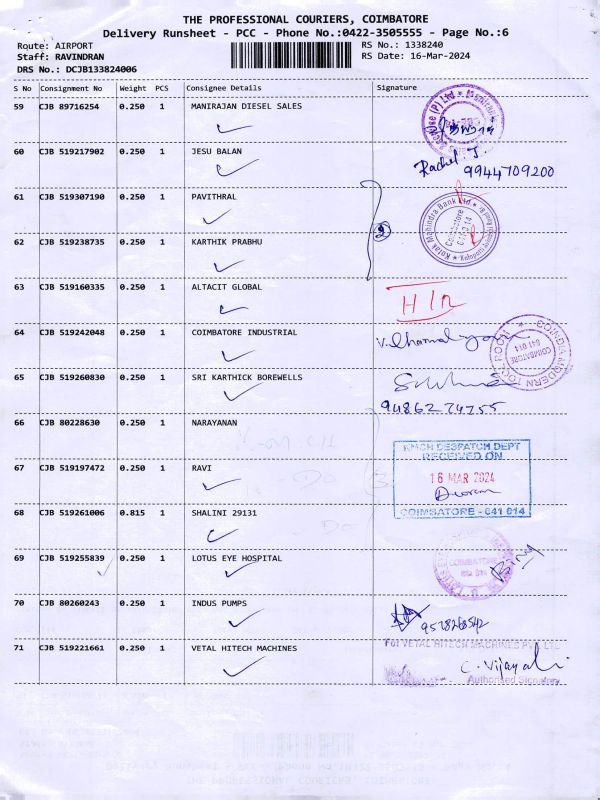 THE PROFESSIONAL COURIERS, COIMBATORE
Delivery Runsheet - PCC - Phone No.:0422-3505555 - Page No.:6
Route: AIRPORT RS No.: 1338240
Staff: RAVINDRAN RS Date: 16-Mar-2024
DRS No.: DCJB133824006
S No Consignment No Weight PCS Consignee Details Signature
59 CJB 89716254 0.250 1 MANIRAJAN DIESEL SALES
60 CJB 519217902 0.250 1 JESU BALAN Rachel J.
9944709200
61 CJB 519307190 0.250 1 PAVITHRAL
Kotak Mahindra Bank Ltd
Coimbatore
2
62 CJB 519238735 0.250 1 KARTHIK PRABHU
63 CJB 519160335 0.250 1 ALTACIT GLOBAL
64 CJB 519242048 0.250 1 COIMBATORE INDUSTRIAL
COINDIA MODERN TOOL ROOM
COIMBATORE
641 014
65 CJB 519260830 0.250 1 SRI KARTHICK BOREWELLS
9486274755
66 CJB 80228630 0.250 1 NARAYANAN
KMCH DESPATCH DEPT
RECEIVED ON
67 CJB 519197472 0.250 1 RAVI 16 MAR 2024
COIMBATORE - 641 014
68 CJB 519261006 0.815 1 SHALINI 29131
69 CJB 519255839 0.250 1 LOTUS EYE HOSPITAL
COIMBATORE
70 CJB 80260243 0.250 1 INDUS PUMPS
71 CJB 519221661 0.250 1 VETAL HITECH MACHINES
For VETAL HITECH MACHINES PVT LTD
C. Vijayali
Authorised Signatory